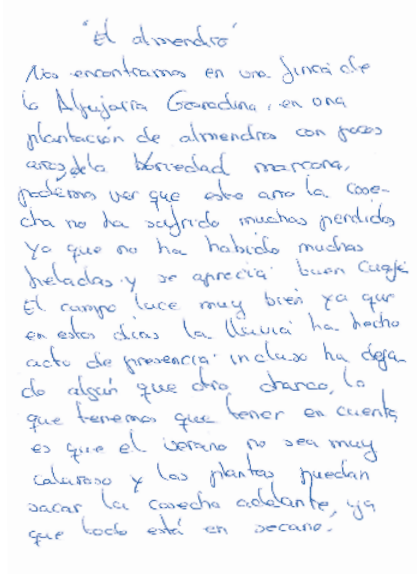 "El almendro"
Nos encontramos en una finca de
la Alpujarra Granadina, en una
plantación de almendros con pocos
años, de la bariedad marcona,
podemos ver que este año la cose-
cha no ha sufrido muchas perdidas
ya que no ha habido muchas
heladas y se aprecia buen cuaje
El campo luce muy bien ya que
en estos dias la lluvia ha hecho
acto de presencia incluso ha deja-
do algún que otro charco, lo
que tenemos que tener en cuenta
es que el verano no sea muy
caluroso y las plantas puedan
sacar la cosecha adelante, ya
que todo está en secano.